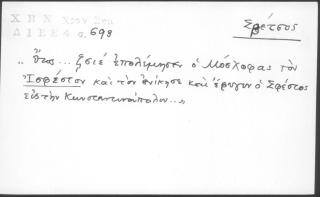 Χ Β Ν Χρον Σεπ
Δ Ι Ε Ε 4 σ. 698
Σφέτσος
„ Ὅτως ... ζσιέ ἐπολέμησεν ὁ Μόσχοφας τὸν
Ἰσφέστον καὶ τὸν ἐνίκησε καὶ ἔφυγεν ὁ Σφέστος
εἰς τὴν Κωνσταντινούπολιν..."